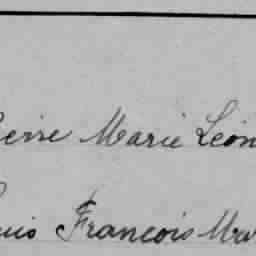 ierre Marie Léon
uis François Ma